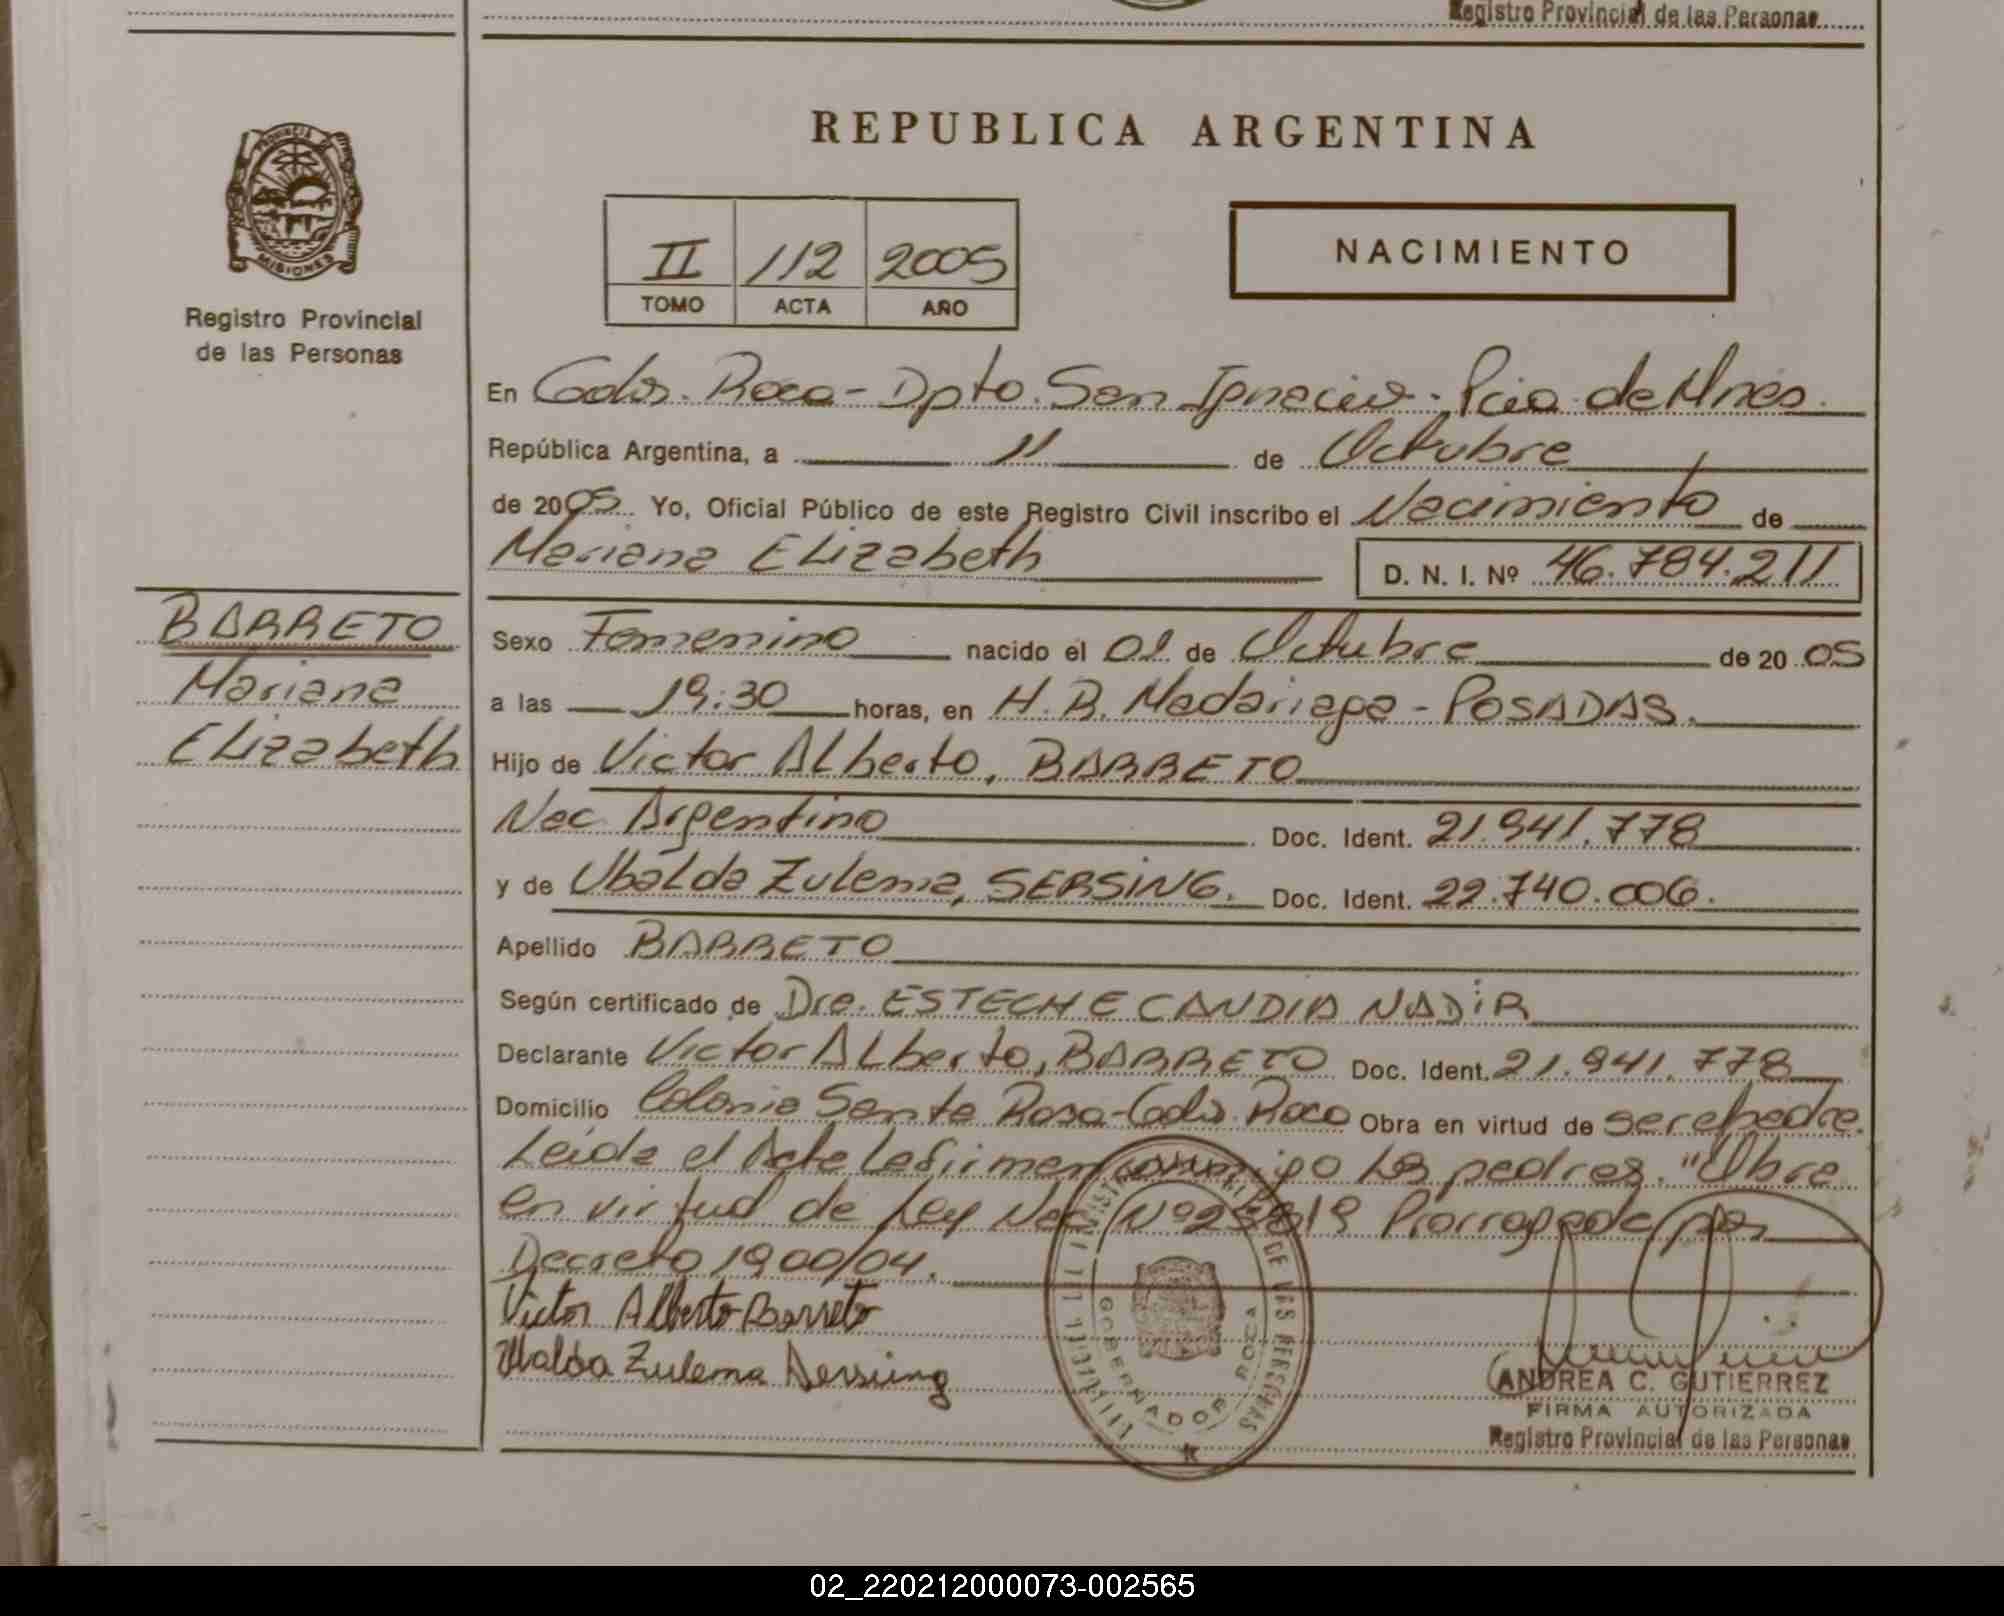 Registro Provincial de las Personas
REPUBLICA ARGENTINA
PROVINCIA DE
MISIONES
Registro Provincial
de las Personas
II 112 2005
TOMO ACTA AÑO
NACIMIENTO
En Gdor. Roca - Dpto. San Ignacio. Pcia de Mnes.
República Argentina, a 11 de Octubre
de 2005 Yo, Oficial Público de este Registro Civil inscribo el Nacimiento de
Mariana Elizabeth D. N. I. Nº 46.784.211
BARRETO
Mariana
Elizabeth
Sexo Femenino nacido el 01 de Octubre de 20 05
a las 19:30 horas, en H. R. Madariaga - POSADAS.
Hijo de Victor Alberto, BARRETO
Nac Argentino Doc. Ident. 21.941.778
y de Ubalda Zulema, SERSING. Doc. Ident. 22.740.006.
Apellido BARRETO
Según certificado de Dra. ESTECHE CANDIA NADIR
Declarante Victor Alberto, BARRETO Doc. Ident. 21.941.778
Domicilio Colonia Santa Rosa - Gdor. Roca Obra en virtud de ser el padre.
Leída el Acta la firman conmigo los padres. "Obra
en virtud de Ley Nac Nº 25819 Prorrogada por
Decreto 1900/04.
Victor Alberto Barreto
Ubalda Zulema Sersing
DE LAS PERSONAS
GOBERNADOR ROCA
ANDREA C. GUTIERREZ
FIRMA AUTORIZADA
Registro Provincial de las Personas
02_220212000073-002565